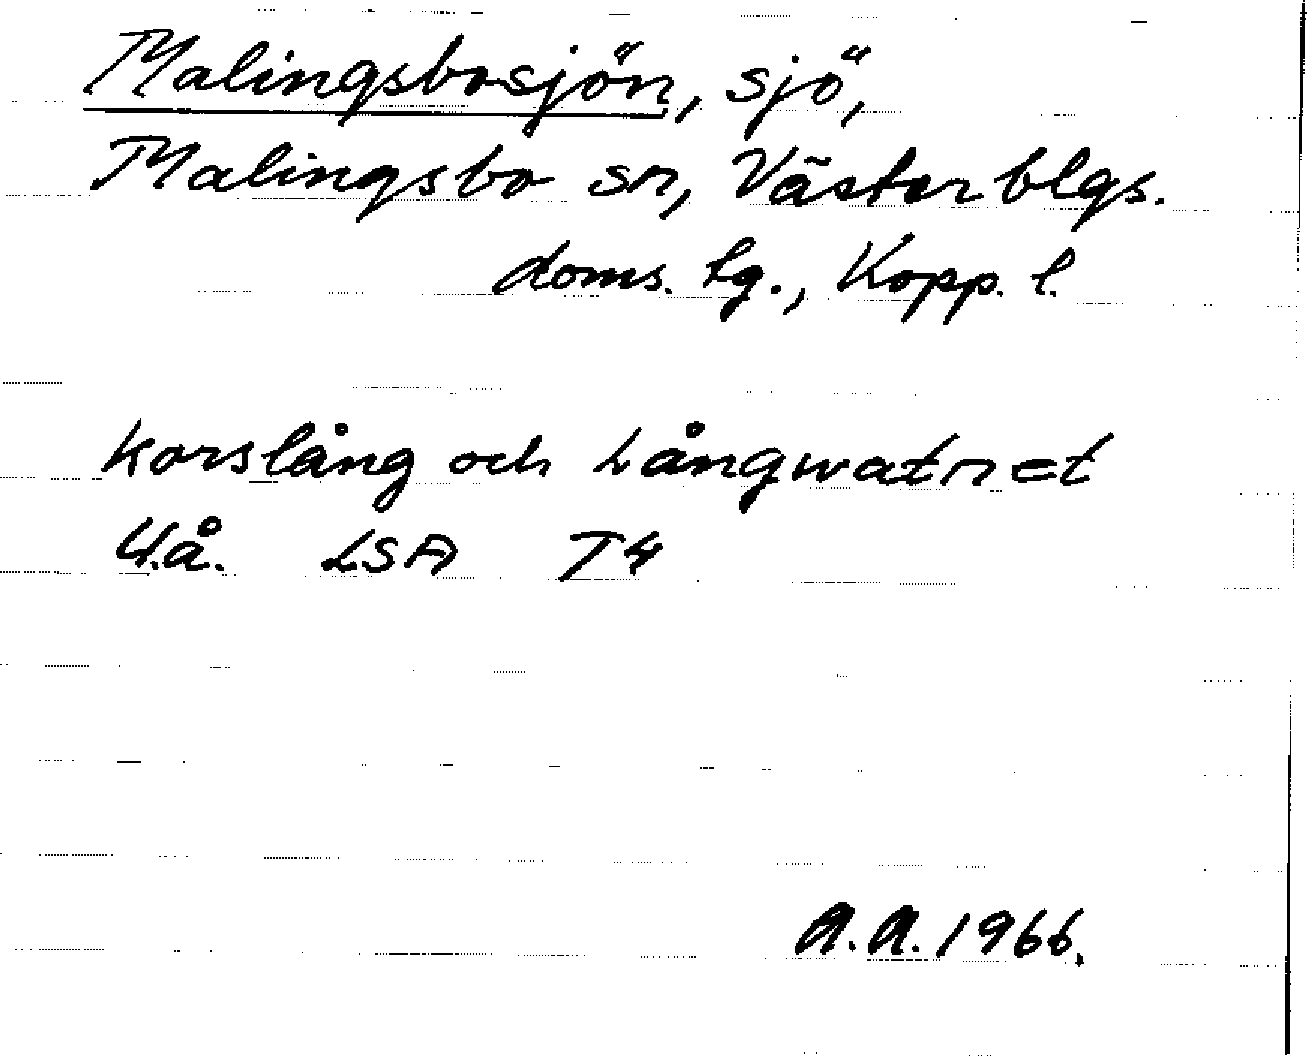 Malingsbosjön, sjö,
Malingsbo sn, Västerblgs.
doms. lg., Kopp. l.
Korslång och Långwatnet
U.å. LSA T4
A.A. 1966.